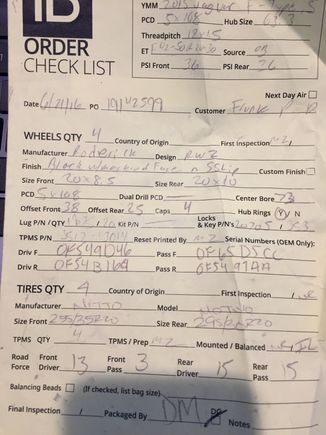 ORDER
CHECK LIST
YMM 2015 Jaguar F-Type S
PCD 5x108 Hub Size 63.3
Threadpitch 12x1.5
ET Source
PSI Front 36 PSI Rear 36
Next Day Air
Date 6/21/16 PO Customer
WHEELS QTY 4 Country of Origin First Inspection MZ
Manufacturer Roderick Design RW2
Finish Custom Finish
Size Front 20x8.5 Size Rear 20x10
PCD 5x108 Dual Drill PCD Center Bore 73
Offset Front 38 Offset Rear 25 Caps 4 Hub Rings Y N
Lug P/N / QTY Kit P/N Locks & Key P/N's
TPMS P/N Reset Printed By MZ Serial Numbers (OEM Only):
Driv F 0F549D46 Pass F 0F65D5CC
Driv R 0F54B164 Pass R
TIRES QTY 4 Country of Origin First Inspection
Manufacturer Model
Size Front 255/35R20 Size Rear 295/30R20
TPMS QTY 4 TPMS / Prep MZ Mounted / Balanced
Road Force Front Driver 13 Front Pass 3 Rear Driver 15 Rear Pass 15
Balancing Beads (If checked, list bag size)
Final Inspection Packaged By DM DG Notes